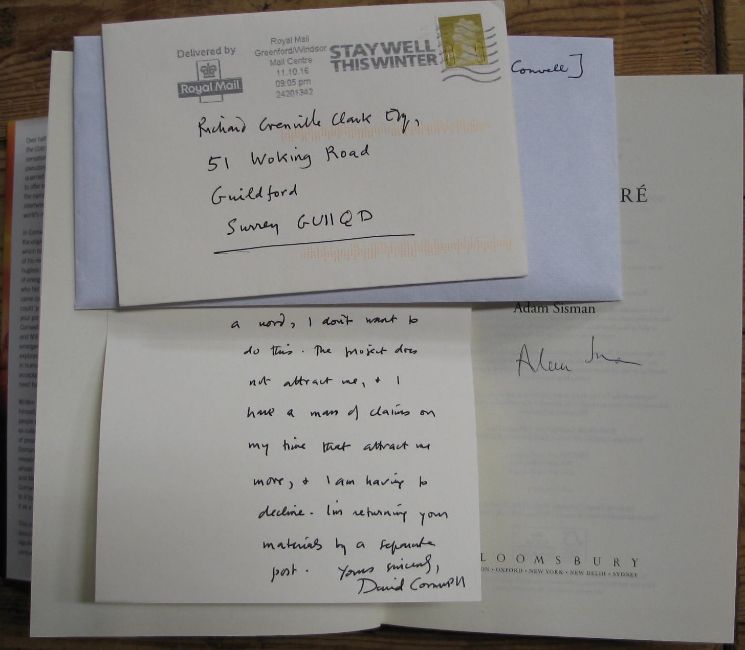 Delivered by
Royal Mail
Royal Mail
Greenford/Windsor
Mail Centre
11.10.16
09:05 pm
24201342
STAY WELL
THIS WINTER
Richard Grenville Clark Esq,
51 Woking Road
Guildford
Surrey GU11QD
Cornwell]
RÉ
Adam Sisman
Adam Sisman
a word, I don't want to
do this. The project does
not attract me, & I
have a mass of claims on
my time that attract me
more, & I am having to
decline. I'm returning your
materials by a separate
post. Yours sincerely,
David Cornwell
LOOMSBURY
ON · OXFORD · NEW YORK · NEW DELHI · SYDNEY